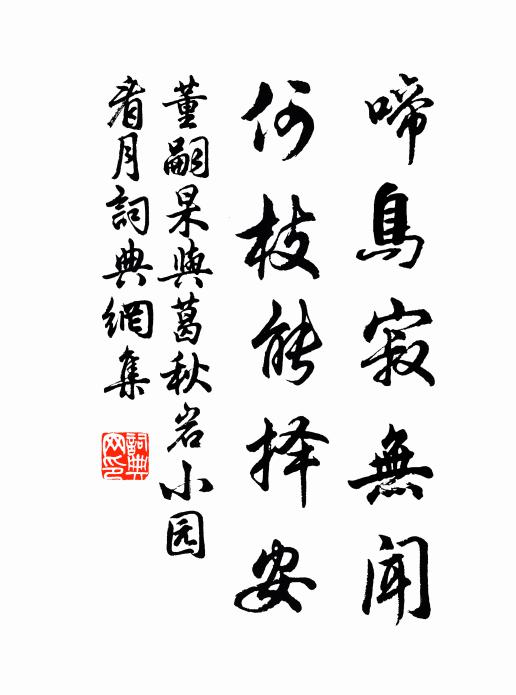 啼鳥寂無聞
何枝能择安
董嗣杲與葛秋岩小园
看月詞典網集
詞典网印